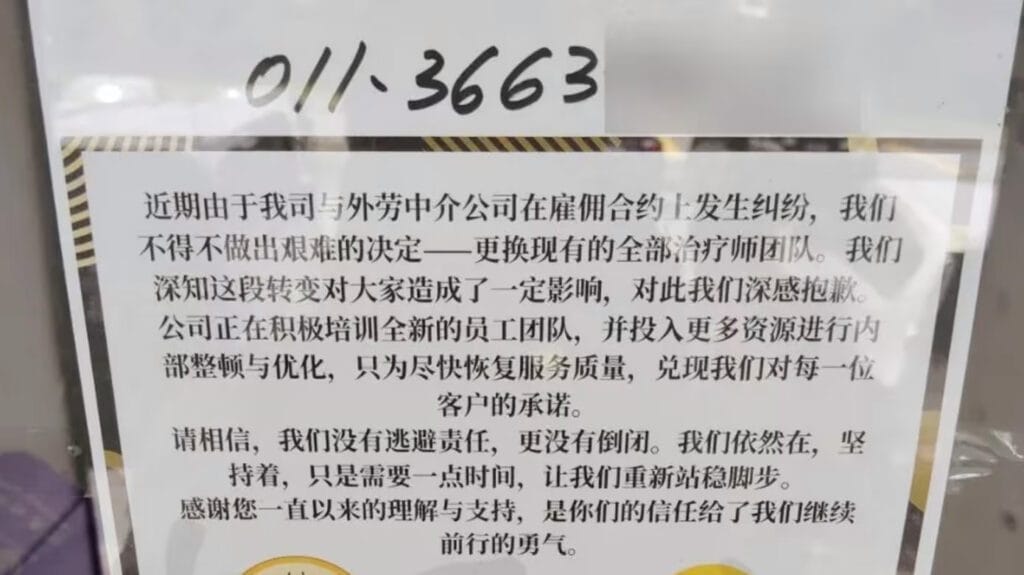 011-3663
近期由于我司与外劳中介公司在雇佣合约上发生纠纷，我们
不得不做出艰难的决定——更换现有的全部治疗师团队。我们
深知这段转变对大家造成了一定影响，对此我们深感抱歉。
公司正在积极培训全新的员工团队，并投入更多资源进行内
部整顿与优化，只为尽快恢复服务质量，兑现我们对每一位
客户的承诺。
请相信，我们没有逃避责任，更没有倒闭。我们依然在，坚
持着，只是需要一点时间，让我们重新站稳脚步。
感谢您一直以来的理解与支持，是你们的信任给了我们继续
前行的勇气。